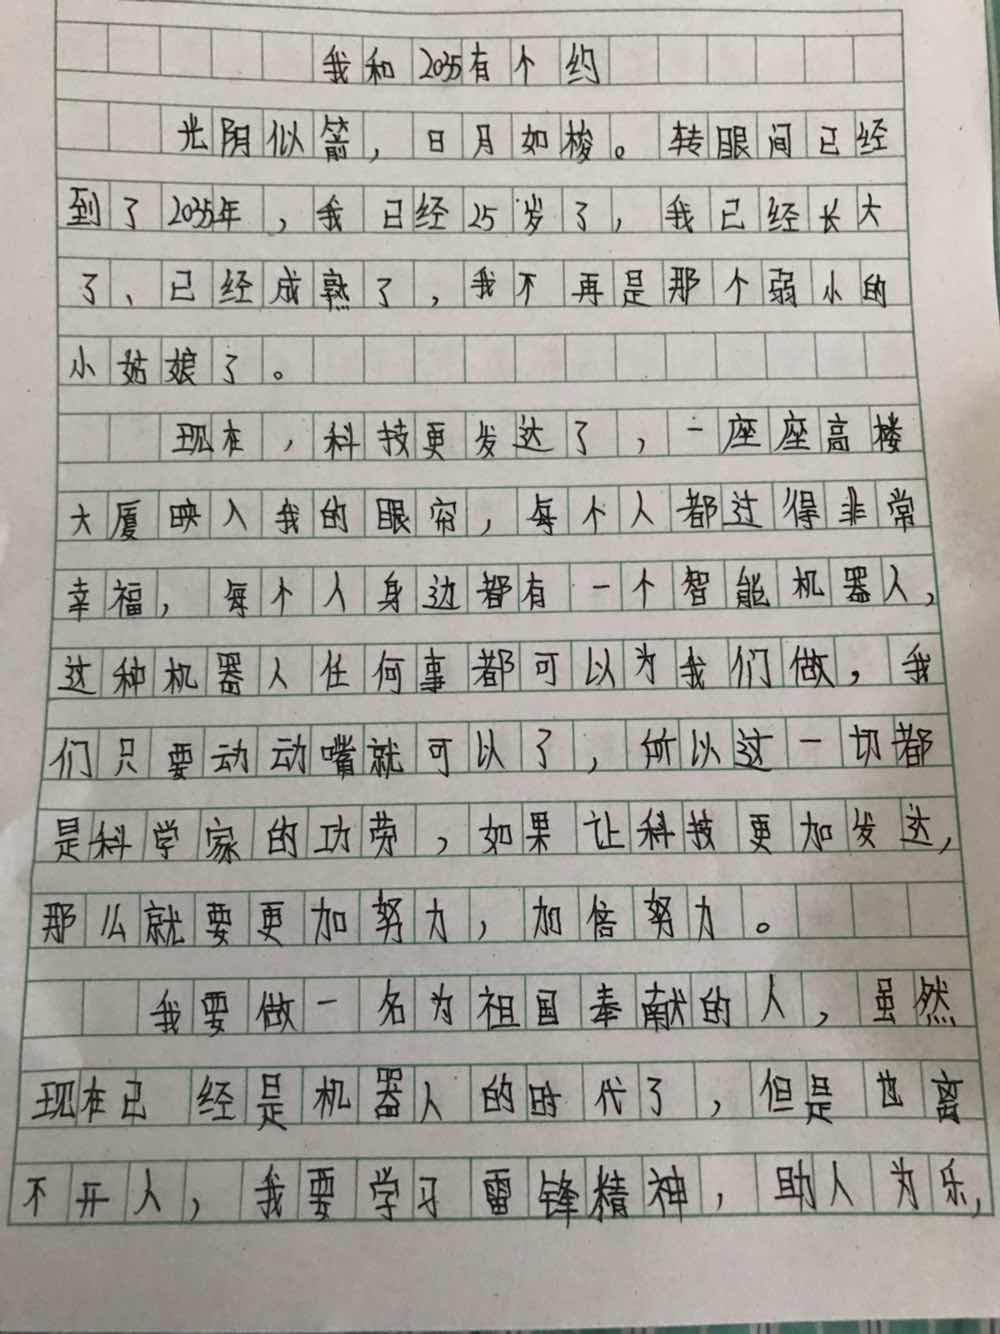 我和2035有个约
光阴似箭，日月如梭。转眼间已经
到了2035年，我已经25岁了，我已经长大
了、已经成熟了，我不再是那个弱小的
小姑娘了。
现在，科技更发达了，一座座高楼
大厦映入我的眼帘，每个人都过得非常
幸福，每个人身边都有一个智能机器人，
这种机器人任何事都可以为我们做，我
们只要动动嘴就可以了，所以这一切都
是科学家的功劳，如果让科技更加发达，
那么就要更加努力，加倍努力。
我要做一名为祖国奉献的人，虽然
现在已经是机器人的时代了，但是也离
不开人，我要学习雷锋精神，助人为乐，